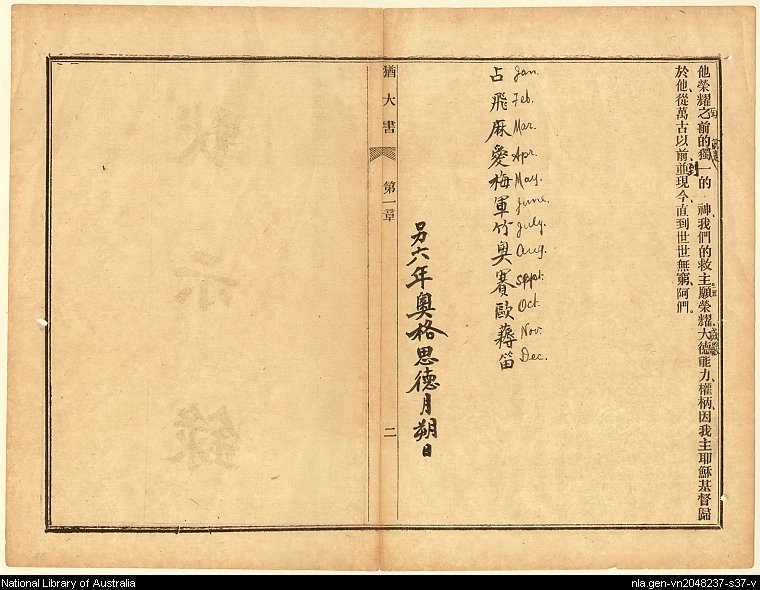 他榮耀之前的獨一的　神、我們的救主。願榮耀、大德能力、權柄、因我主耶穌基督歸
於他、從萬古以前、並現今、直到世世無窮、阿們。
到
占 Jan.
飛 Feb.
麻 Mar.
愛 Apr.
梅 May.
軍 June.
竹 July.
奧 Aug.
賽 Sept.
歐 Oct.
Nov.
笛 Dec.
六年奧格思德月朔日
猶大書
第一章
二
National Library of Australia
nla.gen-vn2048237-s37-v